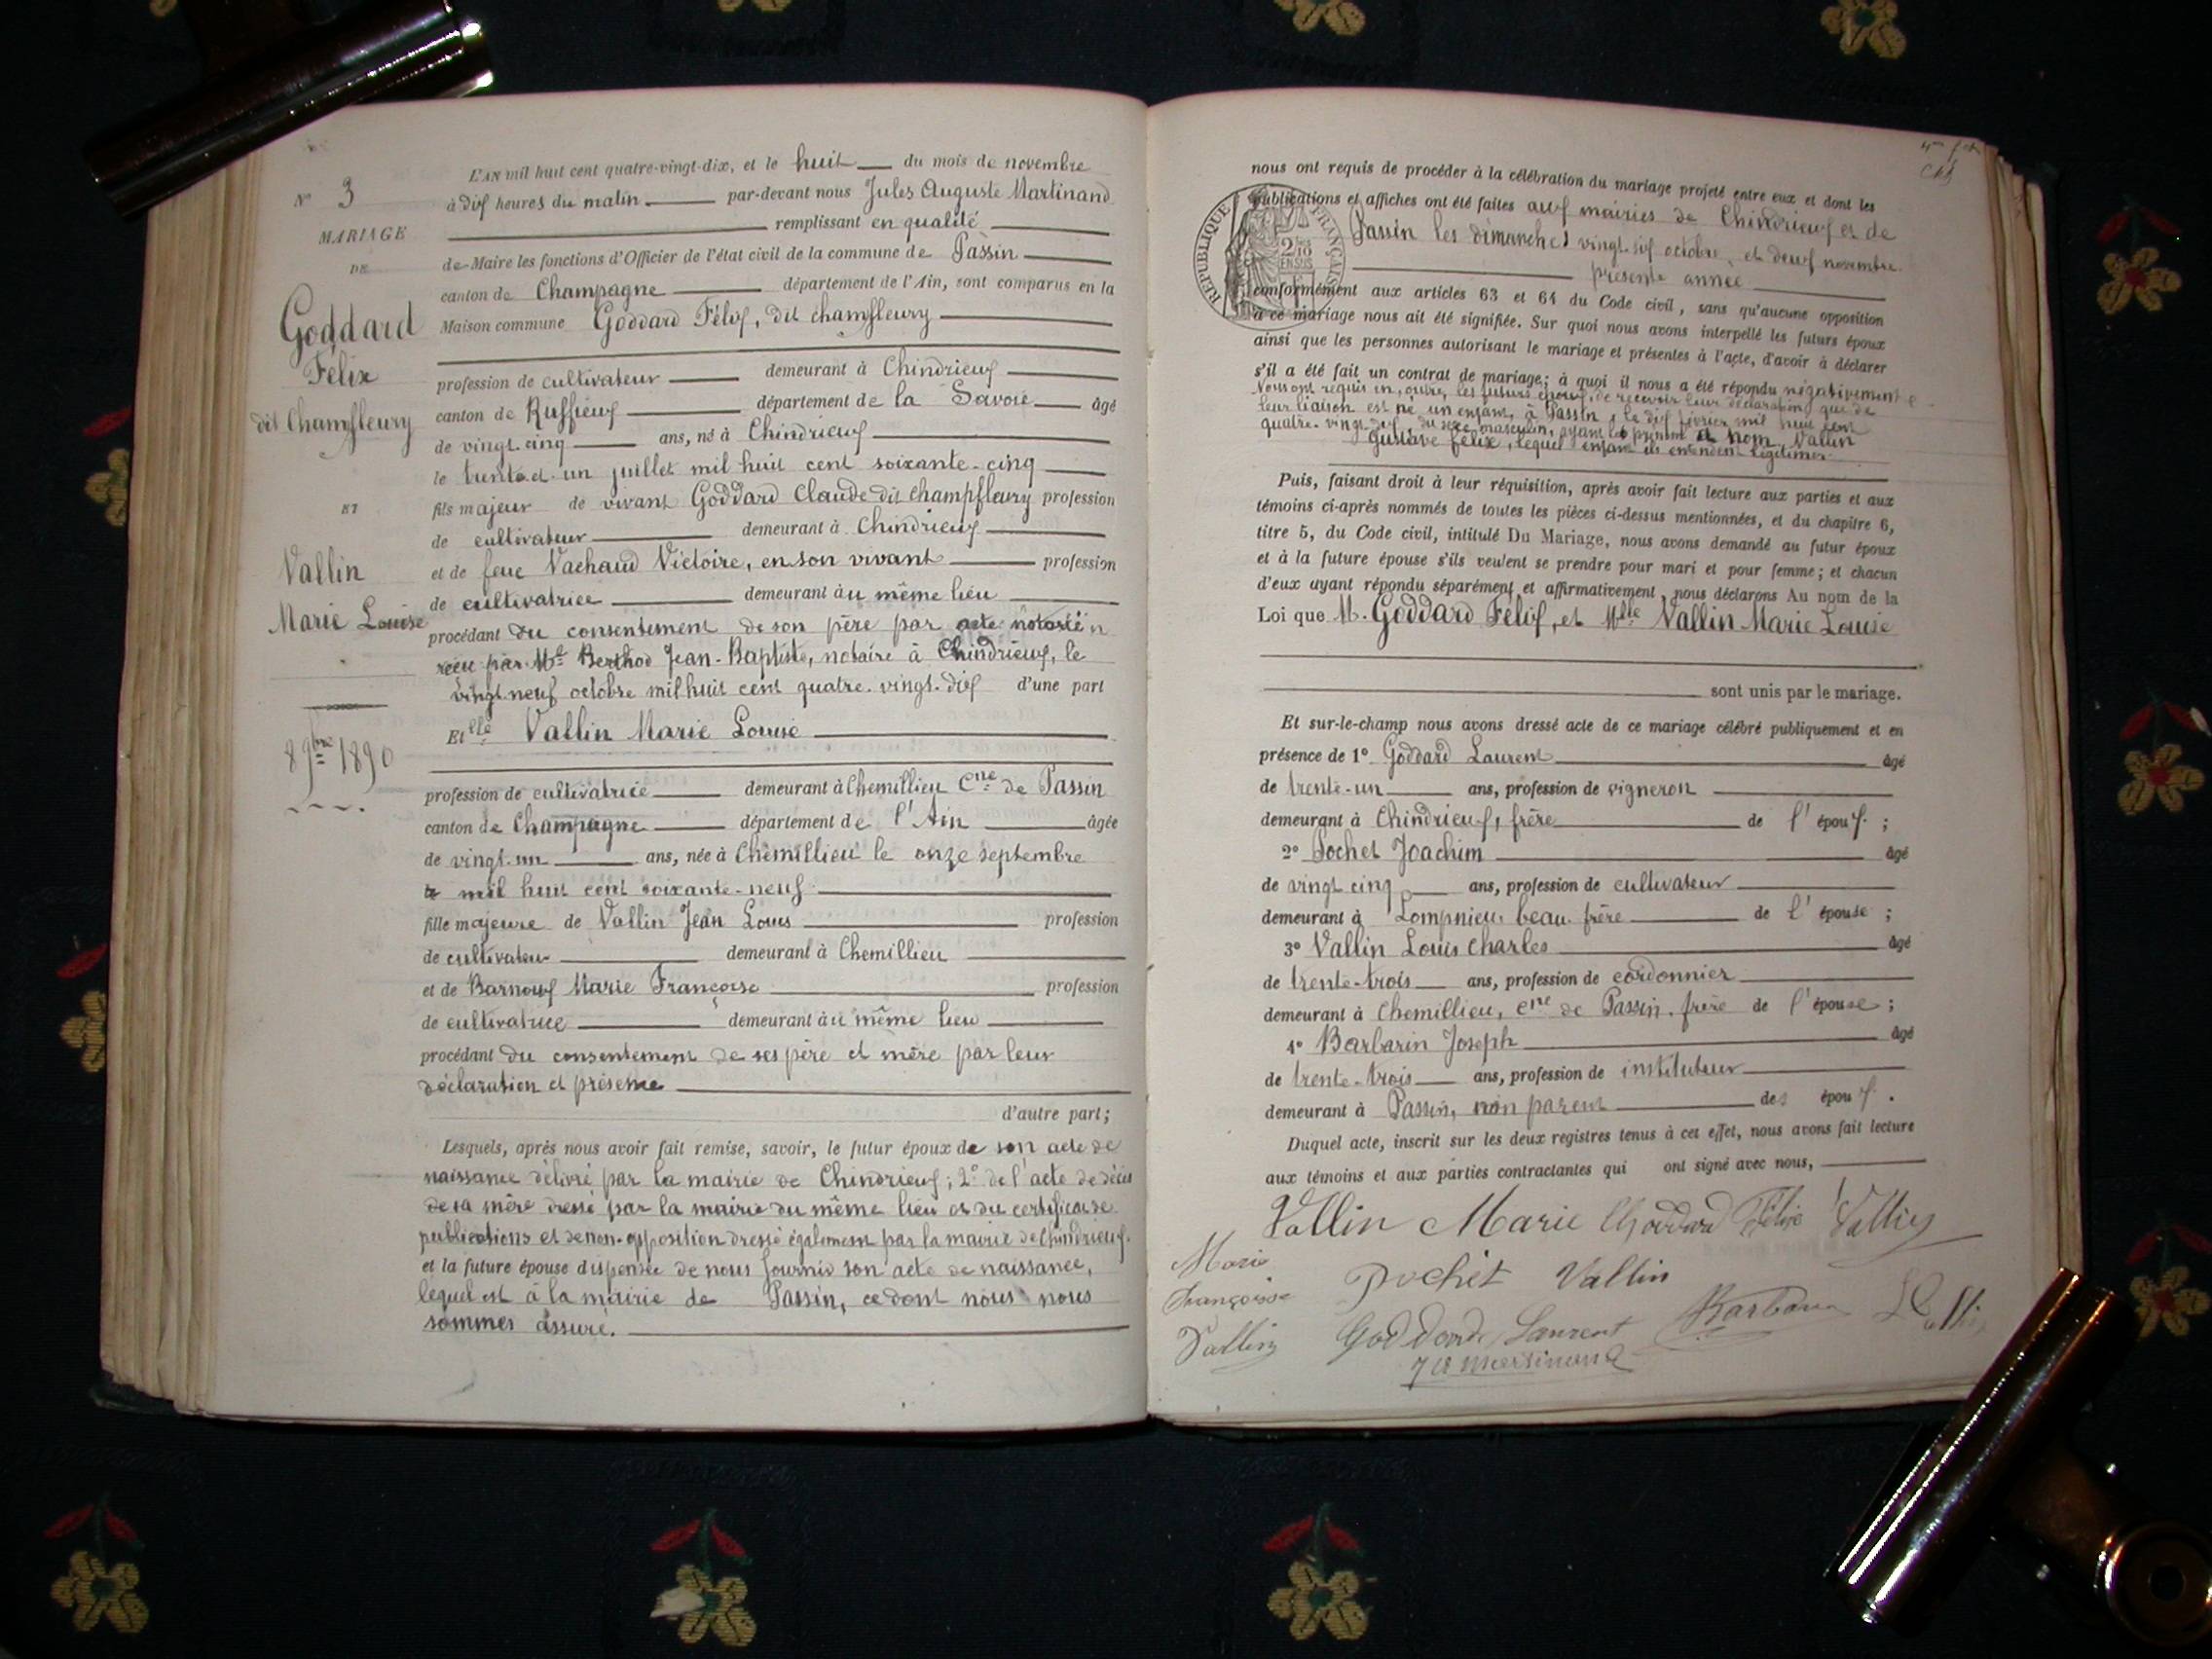 N° 3
MARIAGE
DE
Goddard
Félix
dit Champfleury
ET
Vallin
Marie Louise
8 9bre 1890
L'AN mil huit cent quatre-vingt-dix, et le huit du mois de novembre
à dix heures du matin par-devant nous Jules Auguste Martinand
remplissant en qualité
de Maire les fonctions d'Officier de l'état civil de la commune de Passin
canton de Champagne département de l'Ain, sont comparus en la
Maison commune Goddard Félix, dit champfleury
profession de cultivateur demeurant à Chindrieux
canton de Ruffieux département de la Savoie âgé
de vingt-cinq ans, né à Chindrieux
le trente et un juillet mil huit cent soixante-cinq
fils majeur de vivant Goddard Claude dit champfleury profession
de cultivateur demeurant à Chindrieux
et de feue Vachaud Victoire, en son vivant profession
de cultivatrice demeurant au même lieu
procédant du consentement de son père par acte notarié
reçu par Me Berthod Jean-Baptiste, notaire à Chindrieux, le
vingt-neuf octobre mil huit cent quatre-vingt-dix d'une part
Et elle Vallin Marie Louise
profession de cultivatrice demeurant à Chemillieu Cne de Passin
canton de Champagne département de l'Ain âgée
de vingt-un ans, née à Chemillieu le onze septembre
mil huit cent soixante-neuf
fille majeure de Vallin Jean Louis profession
de cultivateur demeurant à Chemillieu
et de Barnoux Marie Françoise profession
de cultivatrice demeurant au même lieu
procédant du consentement de ses père et mère par leur
déclaration et présence
d'autre part;
Lesquels, après nous avoir fait remise, savoir, le futur époux de son acte de
naissance délivré par la mairie de Chindrieux; 2° de l'acte de décès
de sa mère dressé par la mairie du même lieu et du certificat de
publications et de non-opposition dressé également par la mairie de Chindrieux.
et la future épouse dispensée de nous fournir son acte de naissance,
lequel est à la mairie de Passin, ce dont nous nous
sommes assuré.
nous ont requis de procéder à la célébration du mariage projeté entre eux et dont les
publications et affiches ont été faites aux mairies de Chindrieux et de
Passin les dimanches vingt-six octobre, et deux novembre
présente année
RÉPUBLIQUE FRANÇAISE
conformément aux articles 63 et 64 du Code civil, sans qu'aucune opposition
à ce mariage nous ait été signifiée. Sur quoi nous avons interpellé les futurs époux
ainsi que les personnes autorisant le mariage et présentes à l'acte, d'avoir à déclarer
s'il a été fait un contrat de mariage; à quoi il nous a été répondu négativement
Nous ont requis en outre, les futurs époux, de recevoir leur déclaration que de
leur liaison est né un enfant, à Passin, le dix février mil huit cent
quatre-vingt-dix, du sexe masculin, ayant les prénoms et nom, Vallin
Gustave Félix, lequel enfant ils entendent légitimer
Puis, faisant droit à leur réquisition, après avoir fait lecture aux parties et aux
témoins ci-après nommés de toutes les pièces ci-dessus mentionnées, et du chapitre 6,
titre 5, du Code civil, intitulé Du Mariage, nous avons demandé au futur époux
et à la future épouse s'ils veulent se prendre pour mari et pour femme; et chacun
d'eux ayant répondu séparément et affirmativement, nous déclarons Au nom de la
Loi que M. Goddard Félix, et Mlle Vallin Marie Louise
sont unis par le mariage.
Et sur-le-champ nous avons dressé acte de ce mariage célébré publiquement et en
présence de 1° Goddard Laurent âgé
de trente-un ans, profession de vigneron
demeurant à Chindrieux, frère de l'époux;
2° Pochet Joachim âgé
de vingt cinq ans, profession de cultivateur
demeurant à Lompnieu beau-frère de l'épouse;
3° Vallin Louis Charles âgé
de trente-trois ans, profession de cordonnier
demeurant à Chemillieu, Cne de Passin. frère de l'épouse;
4° Barbarin Joseph âgé
de trente-trois ans, profession de instituteur
demeurant à Passin, non parent des époux.
Duquel acte, inscrit sur les deux registres tenus à cet effet, nous avons fait lecture
aux témoins et aux parties contractantes qui ont signé avec nous,
Vallin Marie Goddard Félix Vallin
Marie
Françoise
Vallin
Pochet Vallin
Goddard Laurent Barbarin
JA Martinand